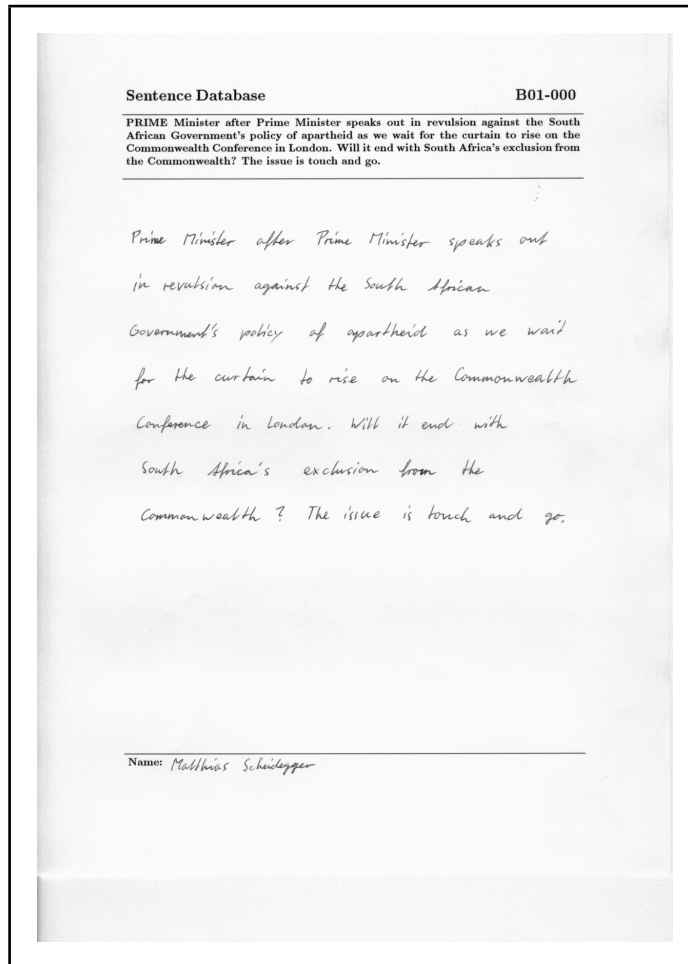 Sentence Database B01-000
PRIME Minister after Prime Minister speaks out in revulsion against the South
African Government's policy of apartheid as we wait for the curtain to rise on the
Commonwealth Conference in London. Will it end with South Africa's exclusion from
the Commonwealth? The issue is touch and go.
Prime Minister after Prime Minister speaks out
in revulsion against the South African
Government's policy of apartheid as we wait
for the curtain to rise on the Commonwealth
Conference in London. Will it end with
South Africa's exclusion from the
Commonwealth ? The issue is touch and go.
Name: Matthias Scheidegger